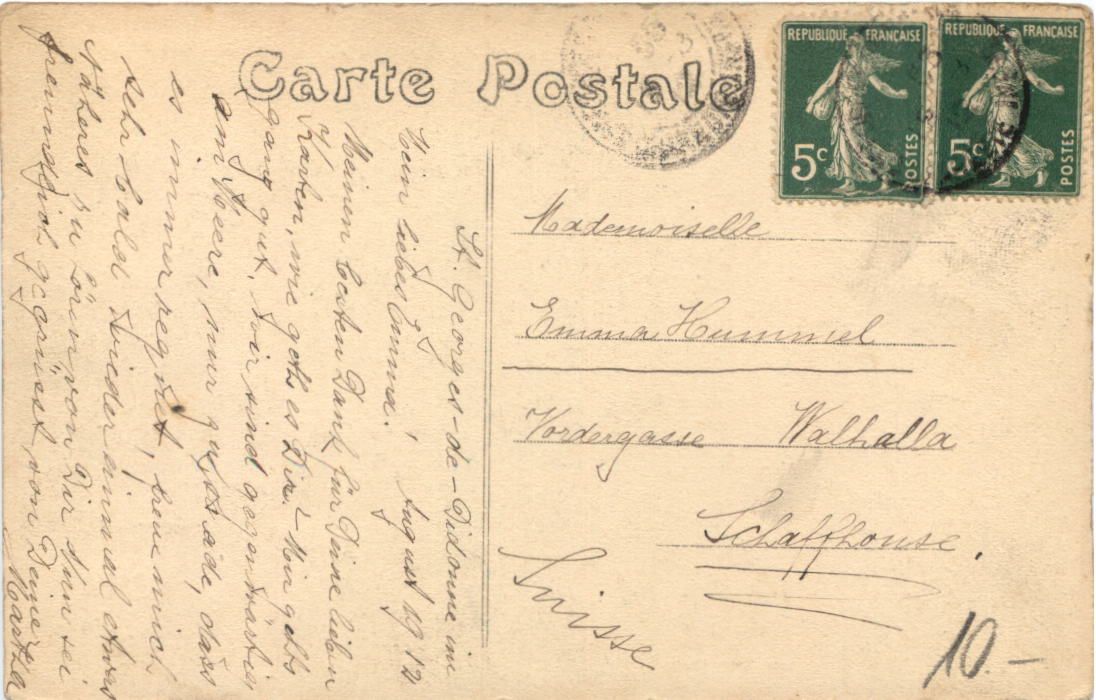 Carte Postale
REPUBLIQUE FRANÇAISE
5c
POSTES
REPUBLIQUE FRANÇAISE
5c
POSTES
St. Georges-de-Didonne im
August 1912
Mein liebes Emma!
Meinen besten Dank für Deine lieben
Karten, wie geht es Dir? Mir gehts
ganz gut, wir sind gegenwärtig
am Meere, nur zu schade, dass
es immer regnet, freue mich
sehr bald wieder einmal etwas
Näheres zu hören von Dir. Nun sei
freundlich gegrüsst von Deiner
Martha
Mademoiselle
Emma Hummel
Vordergasse Walhalla
Schaffhouse.
Suisse
10.-